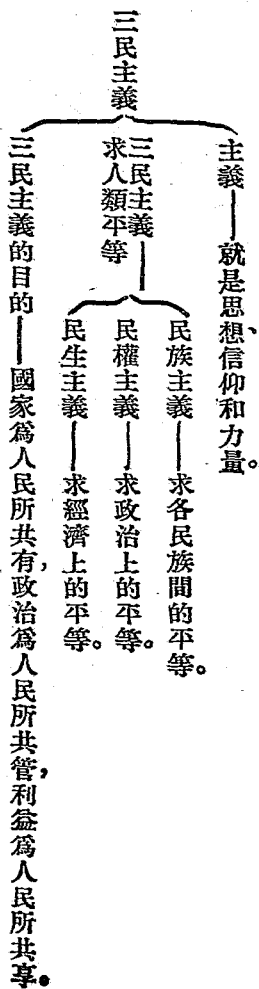 三民主義
主義——就是思想、信仰和力量。
三民主義——
求人類平等
民族主義——求各民族間的平等。
民權主義——求政治上的平等。
民生主義——求經濟上的平等。
三民主義的目的——國家爲人民所共有，政治爲人民所共管，利益爲人民所共享。